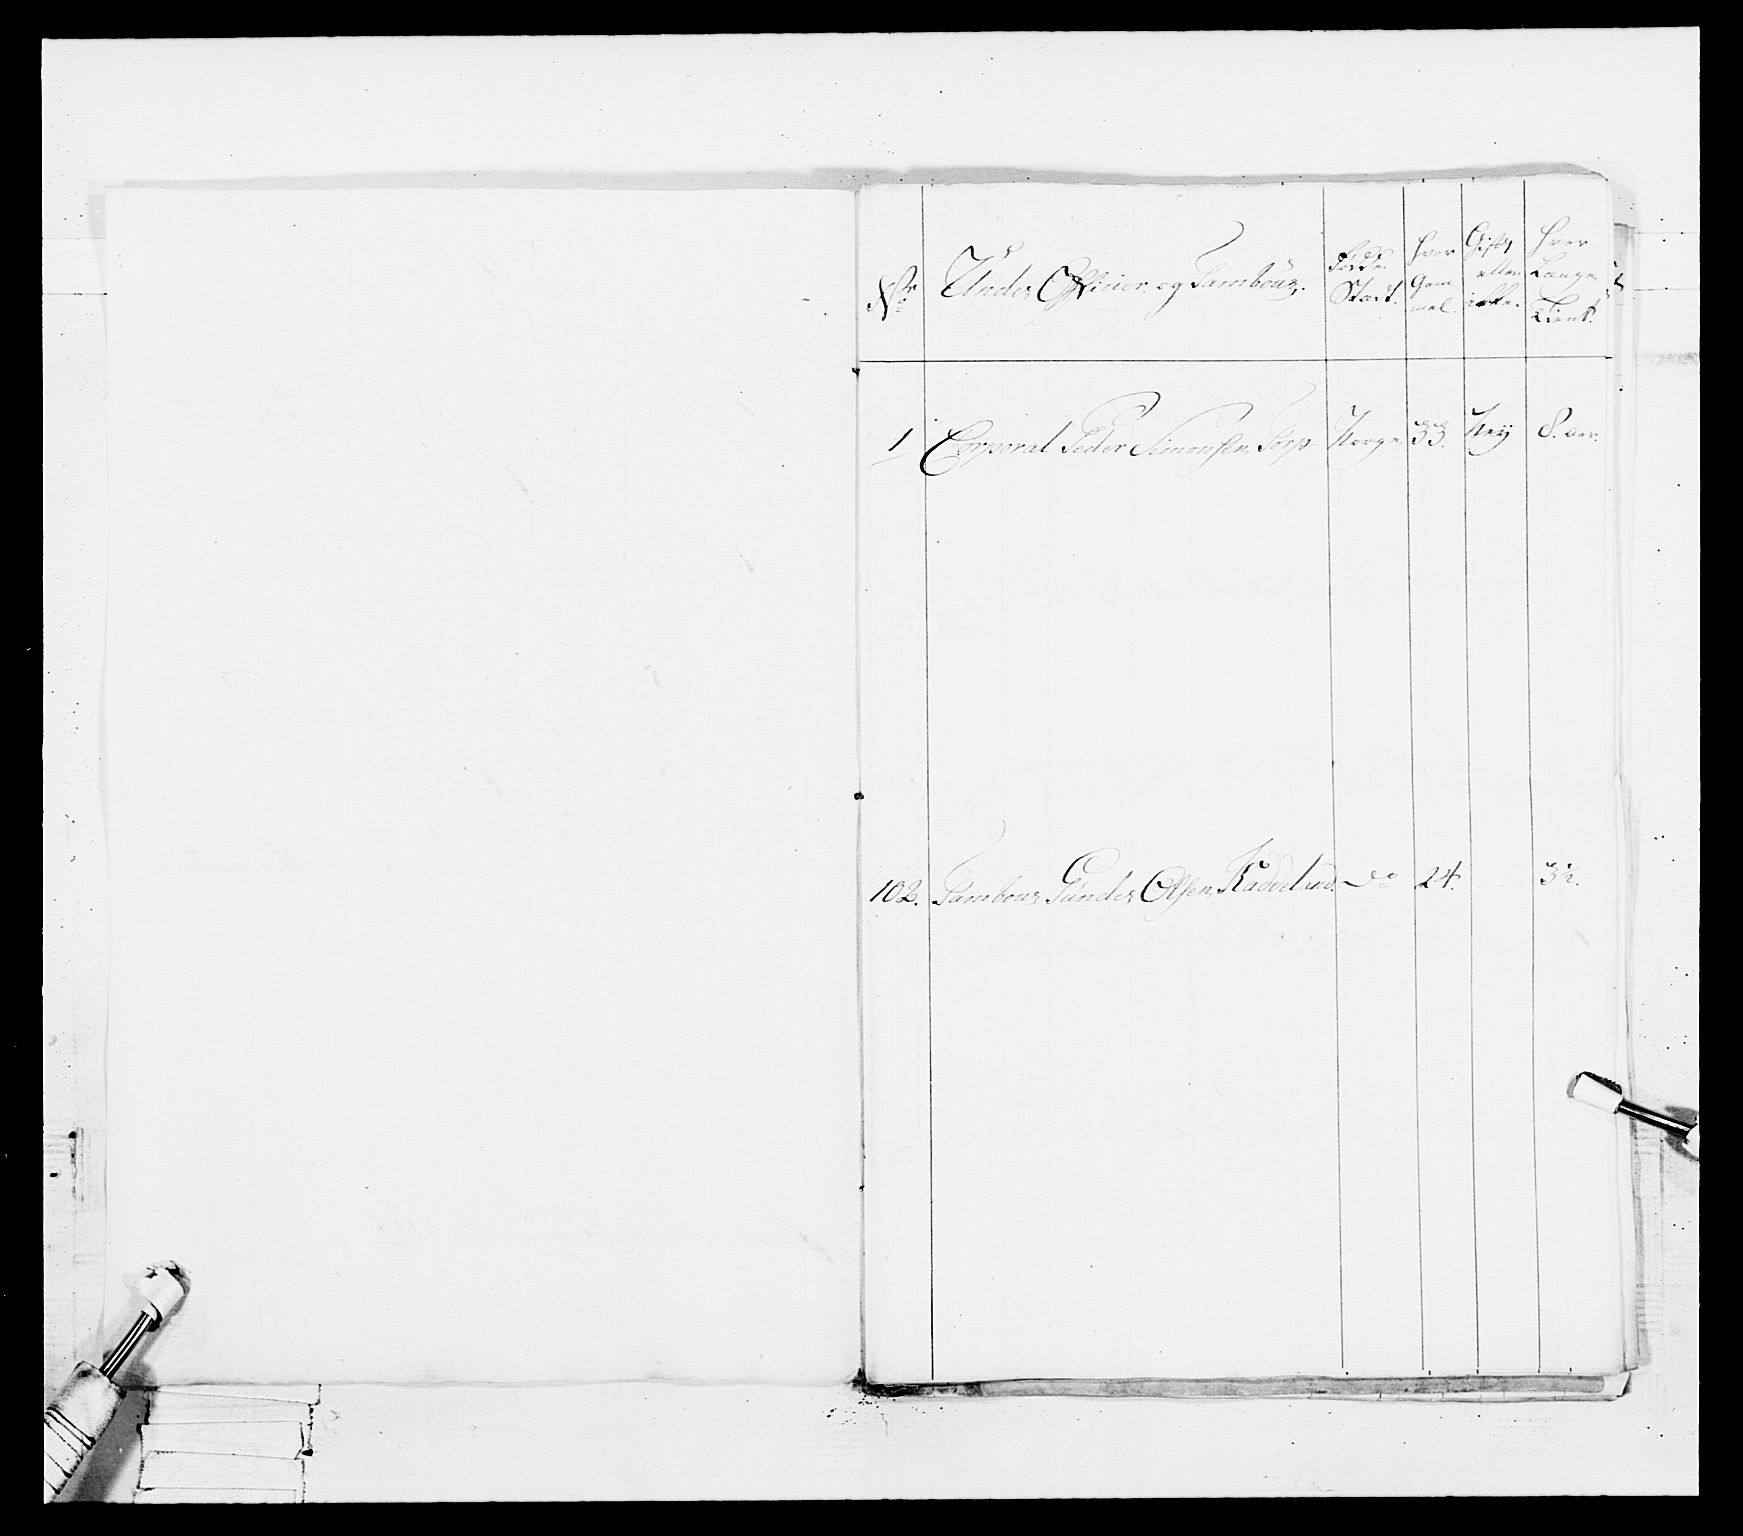 No Under Officier og Tambour. Føde Stad. Hvor Gammel. Gift eller ikke. Hvor Længe Tient.
1 Corporal Peder Simonsen Torp Norge 33. Ney 8. aar.
102. Tambour Gunder Olsen Raddeland do 24. 3½.